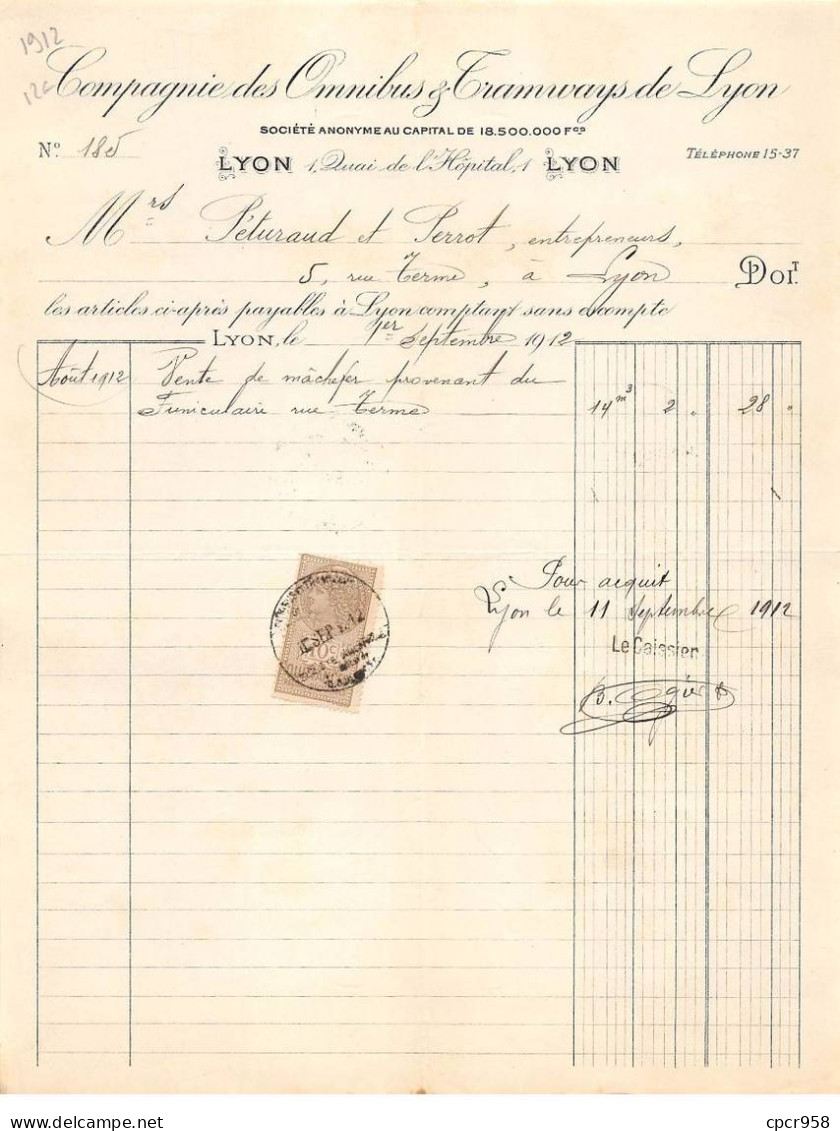 1912
Compagnie des Omnibus & Tramways de Lyon
SOCIÉTÉ ANONYME AU CAPITAL DE 18.500.000 Fcs
No. 185
LYON 1, Quai de l'Hôpital, 1 LYON
TÉLÉPHONE 15-37
Mrs Péturaud et Perrot, entrepreneurs,
5, rue Terme, à Lyon DOIT.
les articles ci-après payables à Lyon comptant sans escompte
LYON, le 1er Septembre 1912
Août 1912 Vente de mâchefer provenant du
Funiculaire rue Terme 14 m3 2 " 28 "
Pour acquit
Lyon le 11 Septembre 1912
Le Caissier
SEPT 12
10 c
cpcr958